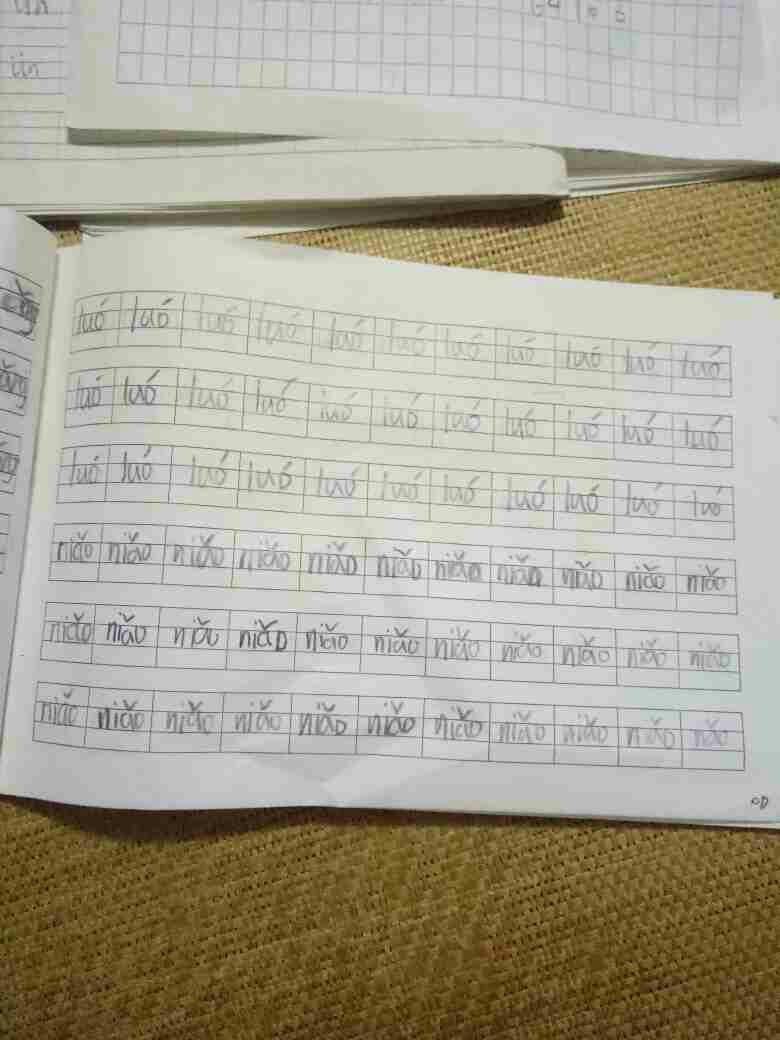 iin
luó luó luó luó luó luó luó luó luó luó luó
luó luó luó luó luó luó luó luó luó luó luó
luó luó luó luó luó luó luó luó luó luó luó
niǎo niǎo niǎo niǎo niǎo niǎo niǎo niǎo niǎo niǎo niǎo
niǎo niǎo niǎo niǎo niǎo niǎo niǎo niǎo niǎo niǎo niǎo
niǎo niǎo niǎo niǎo niǎo niǎo niǎo niǎo niǎo niǎo nǎo